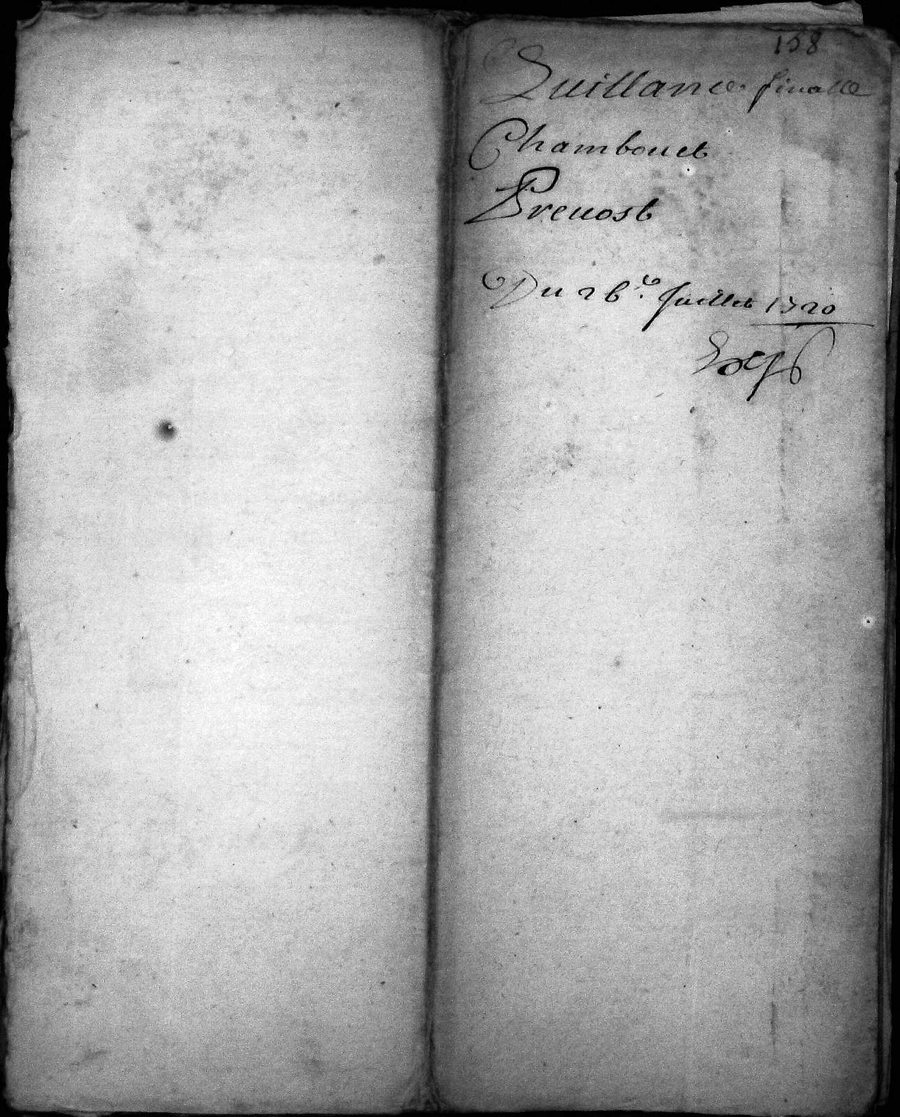 158
Quittance finalle
Chambouet
Prevost
Du 26e. Juillet 1720